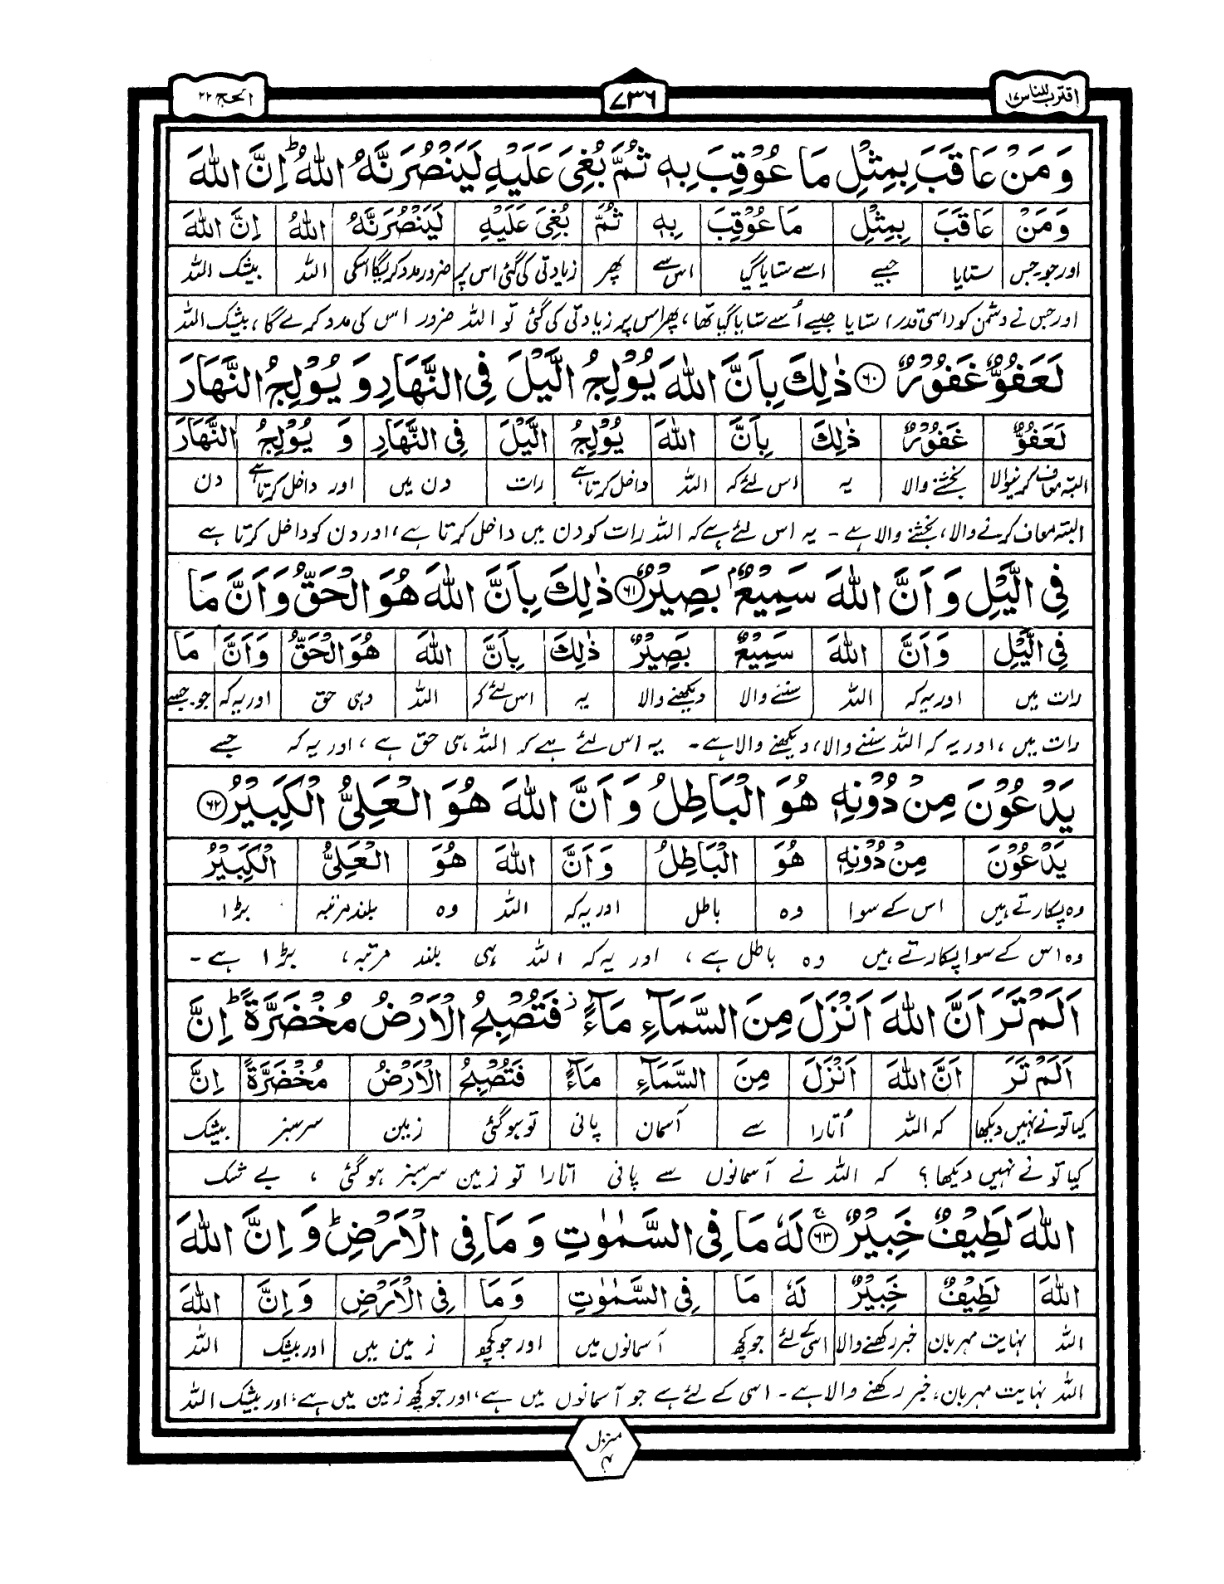 اقترب للناس ١٧
٧٣٦
الحج ٢٢
وَمَنْ عَاقَبَ بِمِثْلِ مَا عُوْقِبَ بِهٖ ثُمَّ بُغِیَ عَلَیْهِ لَیَنْصُرَنَّهُ اللّٰهُ ؕ اِنَّ اللّٰهَ
وَمَنْ عَاقَبَ بِمِثْلِ مَا عُوْقِبَ بِهٖ ثُمَّ بُغِیَ عَلَیْهِ لَیَنْصُرَنَّهُ اللّٰهُ اِنَّ اللّٰهَ
اور جو۔جس ستایا جیسے اسے ستایا گیا اس سے پھر زیادتی کی گئی اس پر ضرور مدد کریگا اسکی اللہ بیشک اللہ
اور جس نے دشمن کو (اسی قدر) ستایا جیسے اُسے ستایا گیا تھا، پھر اس پر زیادتی کی گئی تو اللہ ضرور اس کی مدد کرے گا، بیشک اللہ
لَعَفُوٌّ غَفُوْرٌ ﴿۶۰﴾ ذٰلِكَ بِاَنَّ اللّٰهَ یُوْلِجُ الَّیْلَ فِی النَّهَارِ وَ یُوْلِجُ النَّهَارَ
لَعَفُوٌّ غَفُوْرٌ ذٰلِكَ بِاَنَّ اللّٰهَ یُوْلِجُ الَّیْلَ فِی النَّهَارِ وَ یُوْلِجُ النَّهَارَ
البتہ معاف کرنیوالا بخشنے والا یہ اس لئے کہ اللہ داخل کرتا ہے رات دن میں اور داخل کرتا ہے دن
البتہ معاف کرنے والا، بخشنے والا ہے۔ یہ اس لئے ہے کہ اللہ رات کو دن میں داخل کرتا ہے، اور دن کو داخل کرتا ہے
فِی الَّیْلِ وَ اَنَّ اللّٰهَ سَمِیْعٌۢ بَصِیْرٌ ﴿۶۱﴾ ذٰلِكَ بِاَنَّ اللّٰهَ هُوَ الْحَقُّ وَ اَنَّ مَا
فِی الَّیْلِ وَ اَنَّ اللّٰهَ سَمِیْعٌ بَصِیْرٌ ذٰلِكَ بِاَنَّ اللّٰهَ هُوَ الْحَقُّ وَ اَنَّ مَا
رات میں اور یہ کہ اللہ سننے والا دیکھنے والا یہ اس لئے کہ اللہ وہی حق اور یہ کہ جو۔جسے
رات میں، اور یہ کہ اللہ سننے والا، دیکھنے والا ہے۔ یہ اس لئے ہے کہ اللہ ہی حق ہے، اور یہ کہ جسے
یَدْعُوْنَ مِنْ دُوْنِهٖ هُوَ الْبَاطِلُ وَ اَنَّ اللّٰهَ هُوَ الْعَلِیُّ الْكَبِیْرُ ﴿۶۲﴾
یَدْعُوْنَ مِنْ دُوْنِهٖ هُوَ الْبَاطِلُ وَ اَنَّ اللّٰهَ هُوَ الْعَلِیُّ الْكَبِیْرُ
وہ پکارتے ہیں اس کے سوا وہ باطل اور یہ کہ اللہ وہ بلند مرتبہ بڑا
وہ اس کے سوا پکارتے ہیں وہ باطل ہے، اور یہ کہ اللہ ہی بلند مرتبہ، بڑا ہے۔
اَلَمْ تَرَ اَنَّ اللّٰهَ اَنْزَلَ مِنَ السَّمَآءِ مَآءً ؗ فَتُصْبِحُ الْاَرْضُ مُخْضَرَّةً ؕ اِنَّ
اَلَمْ تَرَ اَنَّ اللّٰهَ اَنْزَلَ مِنَ السَّمَآءِ مَآءً فَتُصْبِحُ الْاَرْضُ مُخْضَرَّةً اِنَّ
کیا تو نے نہیں دیکھا کہ اللہ اُتارا سے آسمان پانی تو ہو گئی زمین سرسبز بیشک
کیا تو نے نہیں دیکھا؟ کہ اللہ نے آسمانوں سے پانی اتارا تو زمین سرسبز ہو گئی، بے شک
اللّٰهَ لَطِیْفٌ خَبِیْرٌ ﴿۶۳﴾ۚ لَهٗ مَا فِی السَّمٰوٰتِ وَ مَا فِی الْاَرْضِ ؕ وَ اِنَّ اللّٰهَ
اللّٰهَ لَطِیْفٌ خَبِیْرٌ لَهٗ مَا فِی السَّمٰوٰتِ وَ مَا فِی الْاَرْضِ وَ اِنَّ اللّٰهَ
اللہ نہایت مہربان خبر رکھنے والا اسی کے لئے جو کچھ آسمانوں میں اور جو کچھ زمین میں اور بیشک اللہ
اللہ نہایت مہربان، خبر رکھنے والا ہے۔ اسی کے لئے ہے جو آسمانوں میں ہے، اور جو کچھ زمین میں ہے، اور بیشک اللہ
منزل
۴